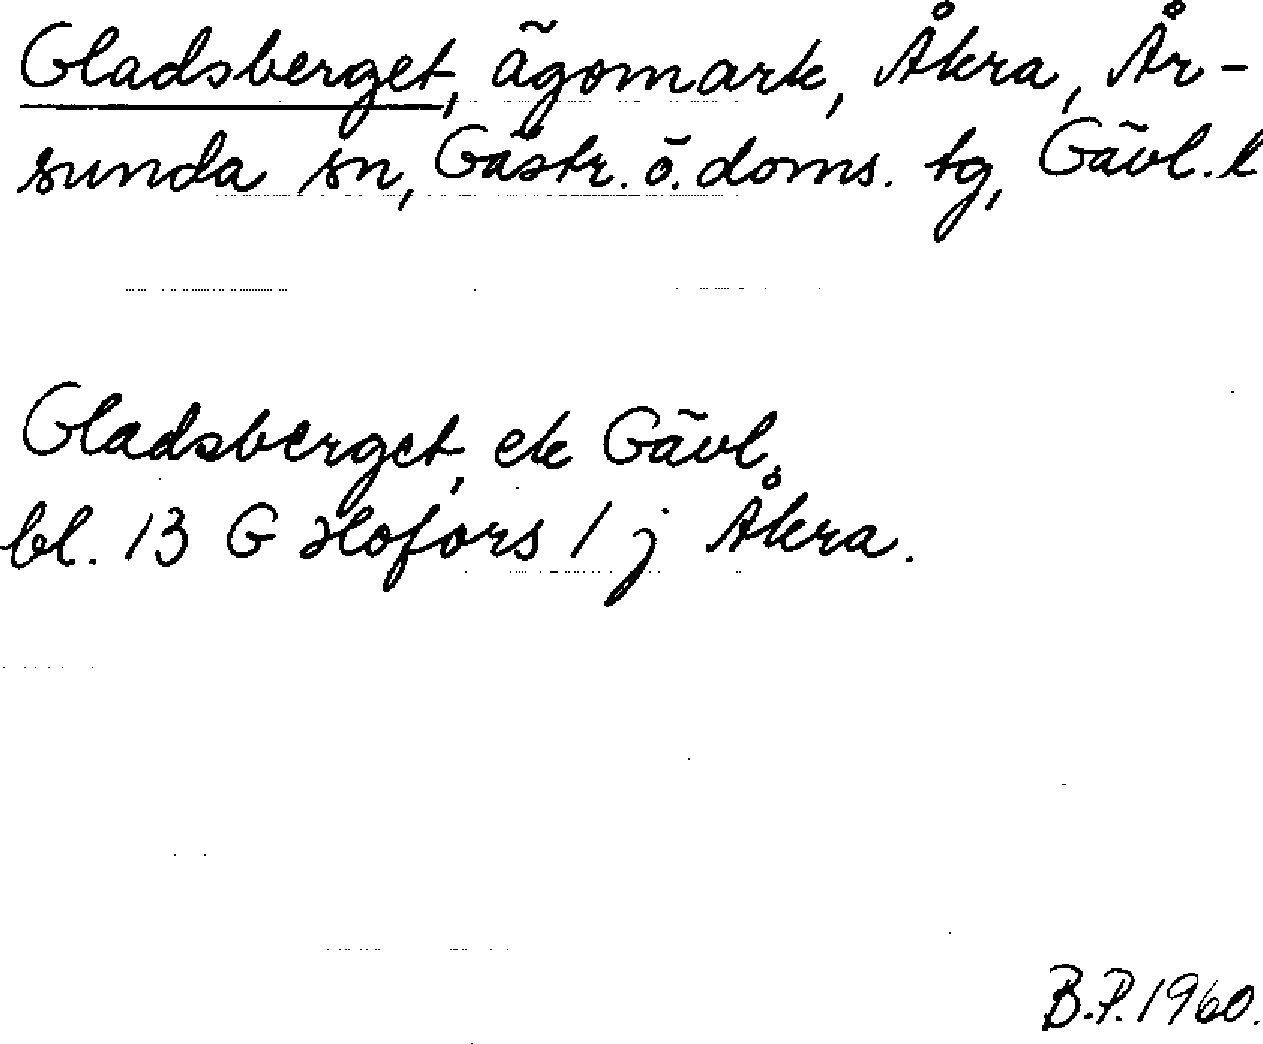 Gladsberget, ägomark, Åkra, År-
sunda sn, Gästr. ö. doms. tg, Gävl. l
Gladsberget, ek Gävl.
bl. 13 G Hofors 1 j Åkra.
B.P. 1960.